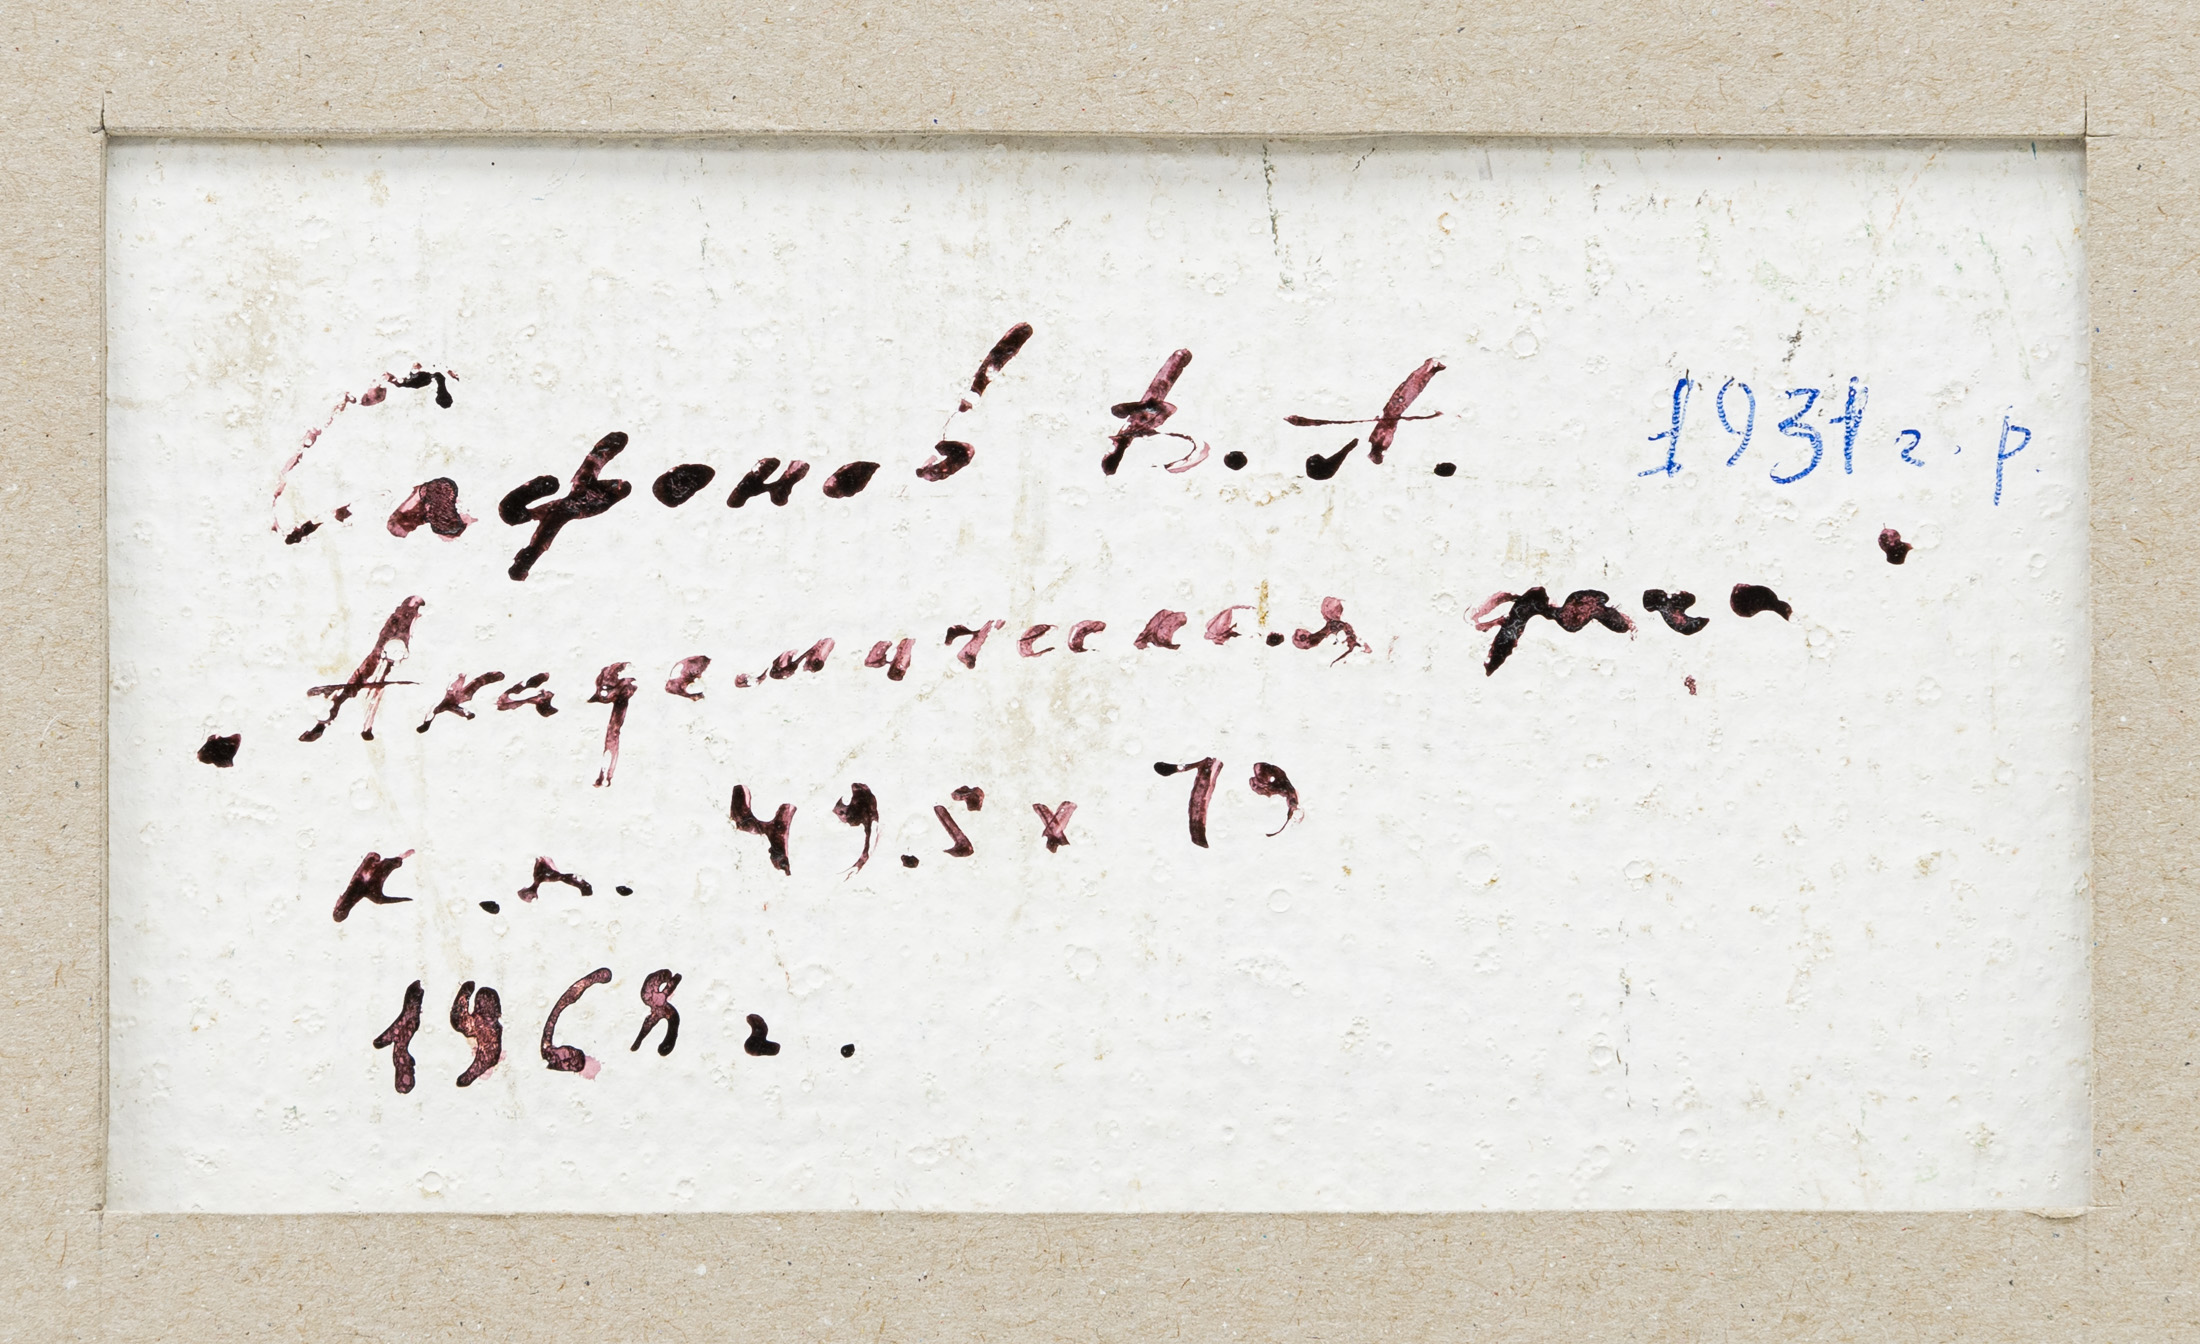 Сафонов В. А. 1931 г. р.
"Академическая дача"
к. м. 49.5 х 79
1968 г.